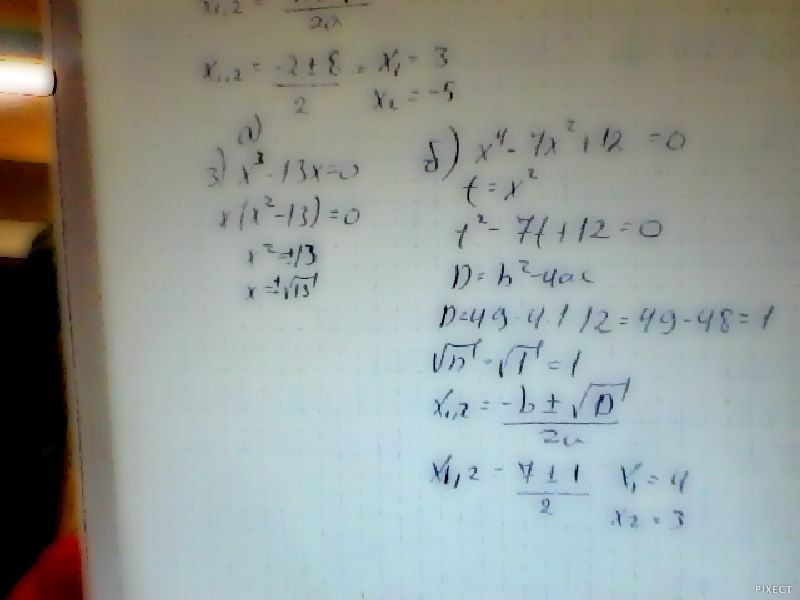 x₁,₂ =
2a
x₁,₂ = (-2 ± 8)/2 = x₁ = 3
x₂ = -5
а)
3) x³ - 13x = 0
x(x² - 13) = 0
x² = 13
x = ±√13
б) x⁴ - 7x² + 12 = 0
t = x²
t² - 7t + 12 = 0
D = b² - 4ac
D = 49 - 4·1·12 = 49 - 48 = 1
√D = √1 = 1
x₁,₂ = (-b ± √D)/2a
x₁,₂ = (7 ± 1)/2 x₁ = 4
x₂ = 3
PIXECT